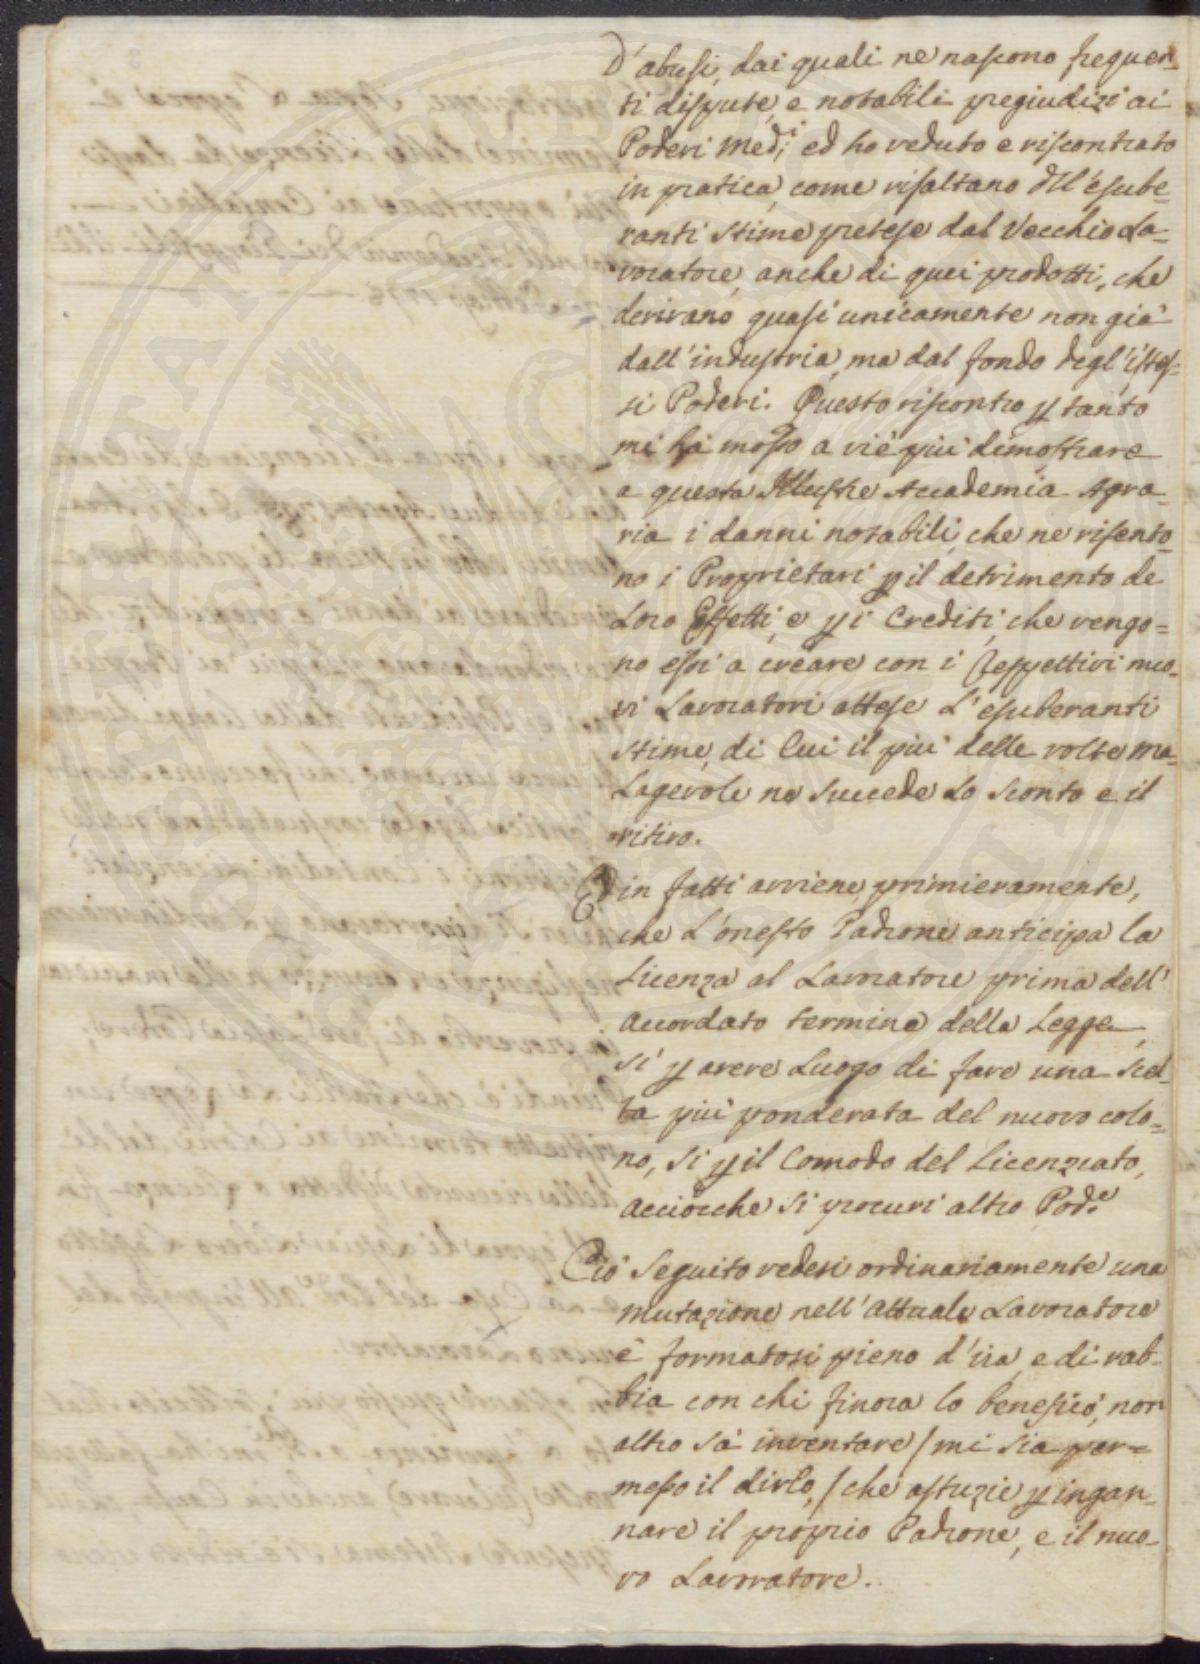 D'abusi, dai quali ne nascono frequen-
ti dispute, e notabili pregiudizi ai
Poderi med.i ed ho veduto e riscontrato
in pratica, come risaltano dll'esube-
ranti stime pretese dal Vecchio La-
voratore, anche di quei prodotti, che
derivano quasi unicamente non già
dall'industria, ma dal fondo degl'istes-
si Poderi. Questo riscontro p tanto
mi ha mosso a viè più dimostrare
a questa Illustre Accademia Agra-
ria i danni notabili, che ne risento-
no i Proprietari p il detrimento de
Loro Effetti, e p i Crediti, che vengo=
no essi a creare con i Respettivi nuo-
vi Lavoratori attese L'esuberanti
stime, di Cui il più delle volte ma-
lagevole ne succede Lo sconto e il
ritiro.
Ed in fatti avviene, primieramente,
che L'onesto Padrone anticipa la
Licenza al Lavoratore prima dell'
accordato termine della Legge,
sì p avere Luogo di fare una scel-
ta più ponderata del nuovo colo=
no, sì p il Comodo del Licenziato,
acciocche si procuri altro Pod.e
Ciò seguito vedesi ordinariamente una
mutazione nell'attuale Lavoratore
è formatosi pieno d'ira, e di rab-
bia con chi finora lo beneficò, non
altro sà inventare / mi sia per=
messo il dirlo, / che astuzie p ingan-
nare il proprio Padrone, e il nuo-
vo Lavoratore.